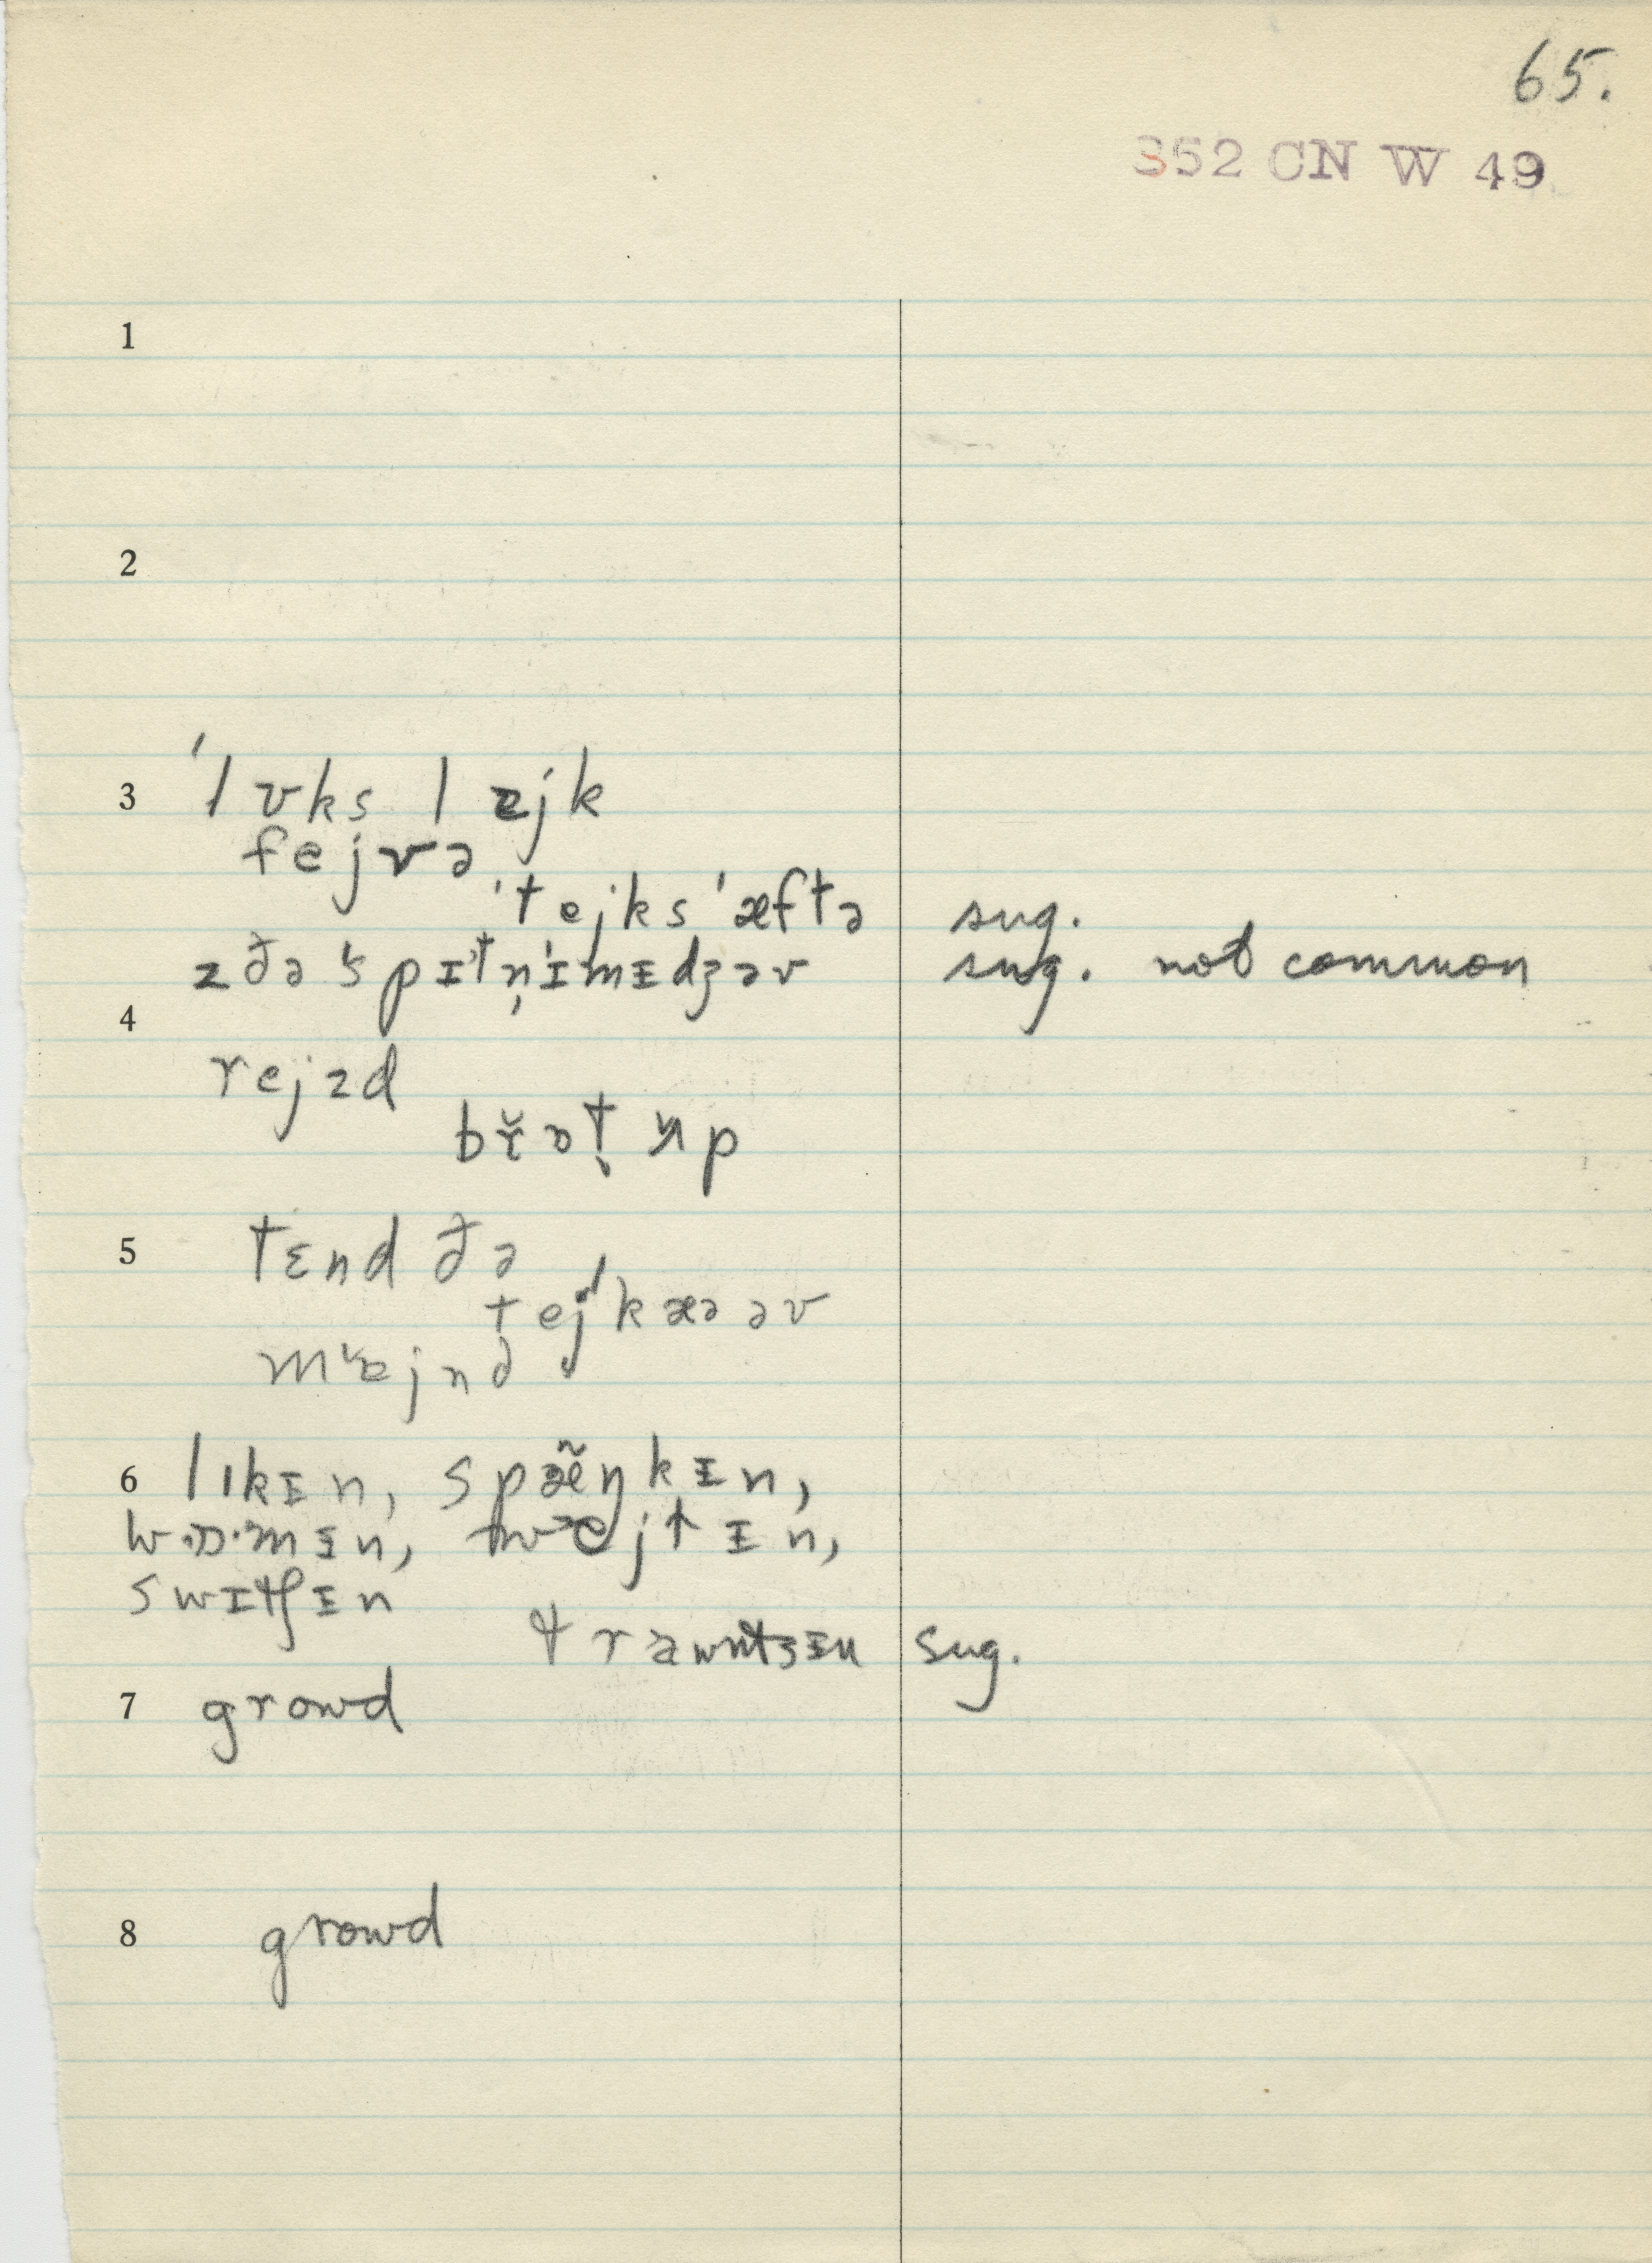 65.
352 CN W 49
1
2
3 ˈlʊks lɐjk
fejvə
ˈtejksˈæftə sug.
zðəˈspɪtn̩ˈɪmɪdʒəv sug. not common
4
rejzd
brɒt ʌp
5 tɛnd ðə
tejkæəəv
mɐjnd
6 lɪkɪn, spæ̃ŋkɪn,
wɒˑmɪn, wejtɪn,
swɪtʃɪn
trawntsɪn sug.
7 growd
8 growd